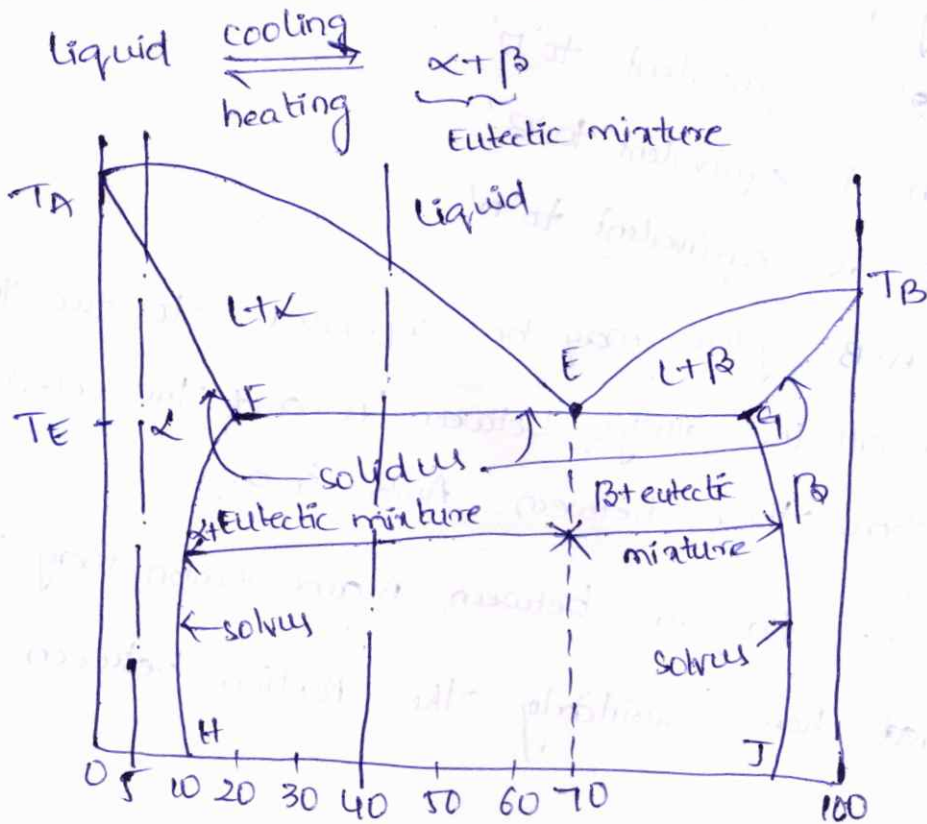 liquid cooling
heating
α+β
Eutectic mixture
TA
liquid
L+α
TB
E
L+β
F
TE
α
G
solidus
α+Eutectic mixture
β+eutectic
mixture
β
←solvus
solvus
H
J
0 5 10 20 30 40 50 60 70 100